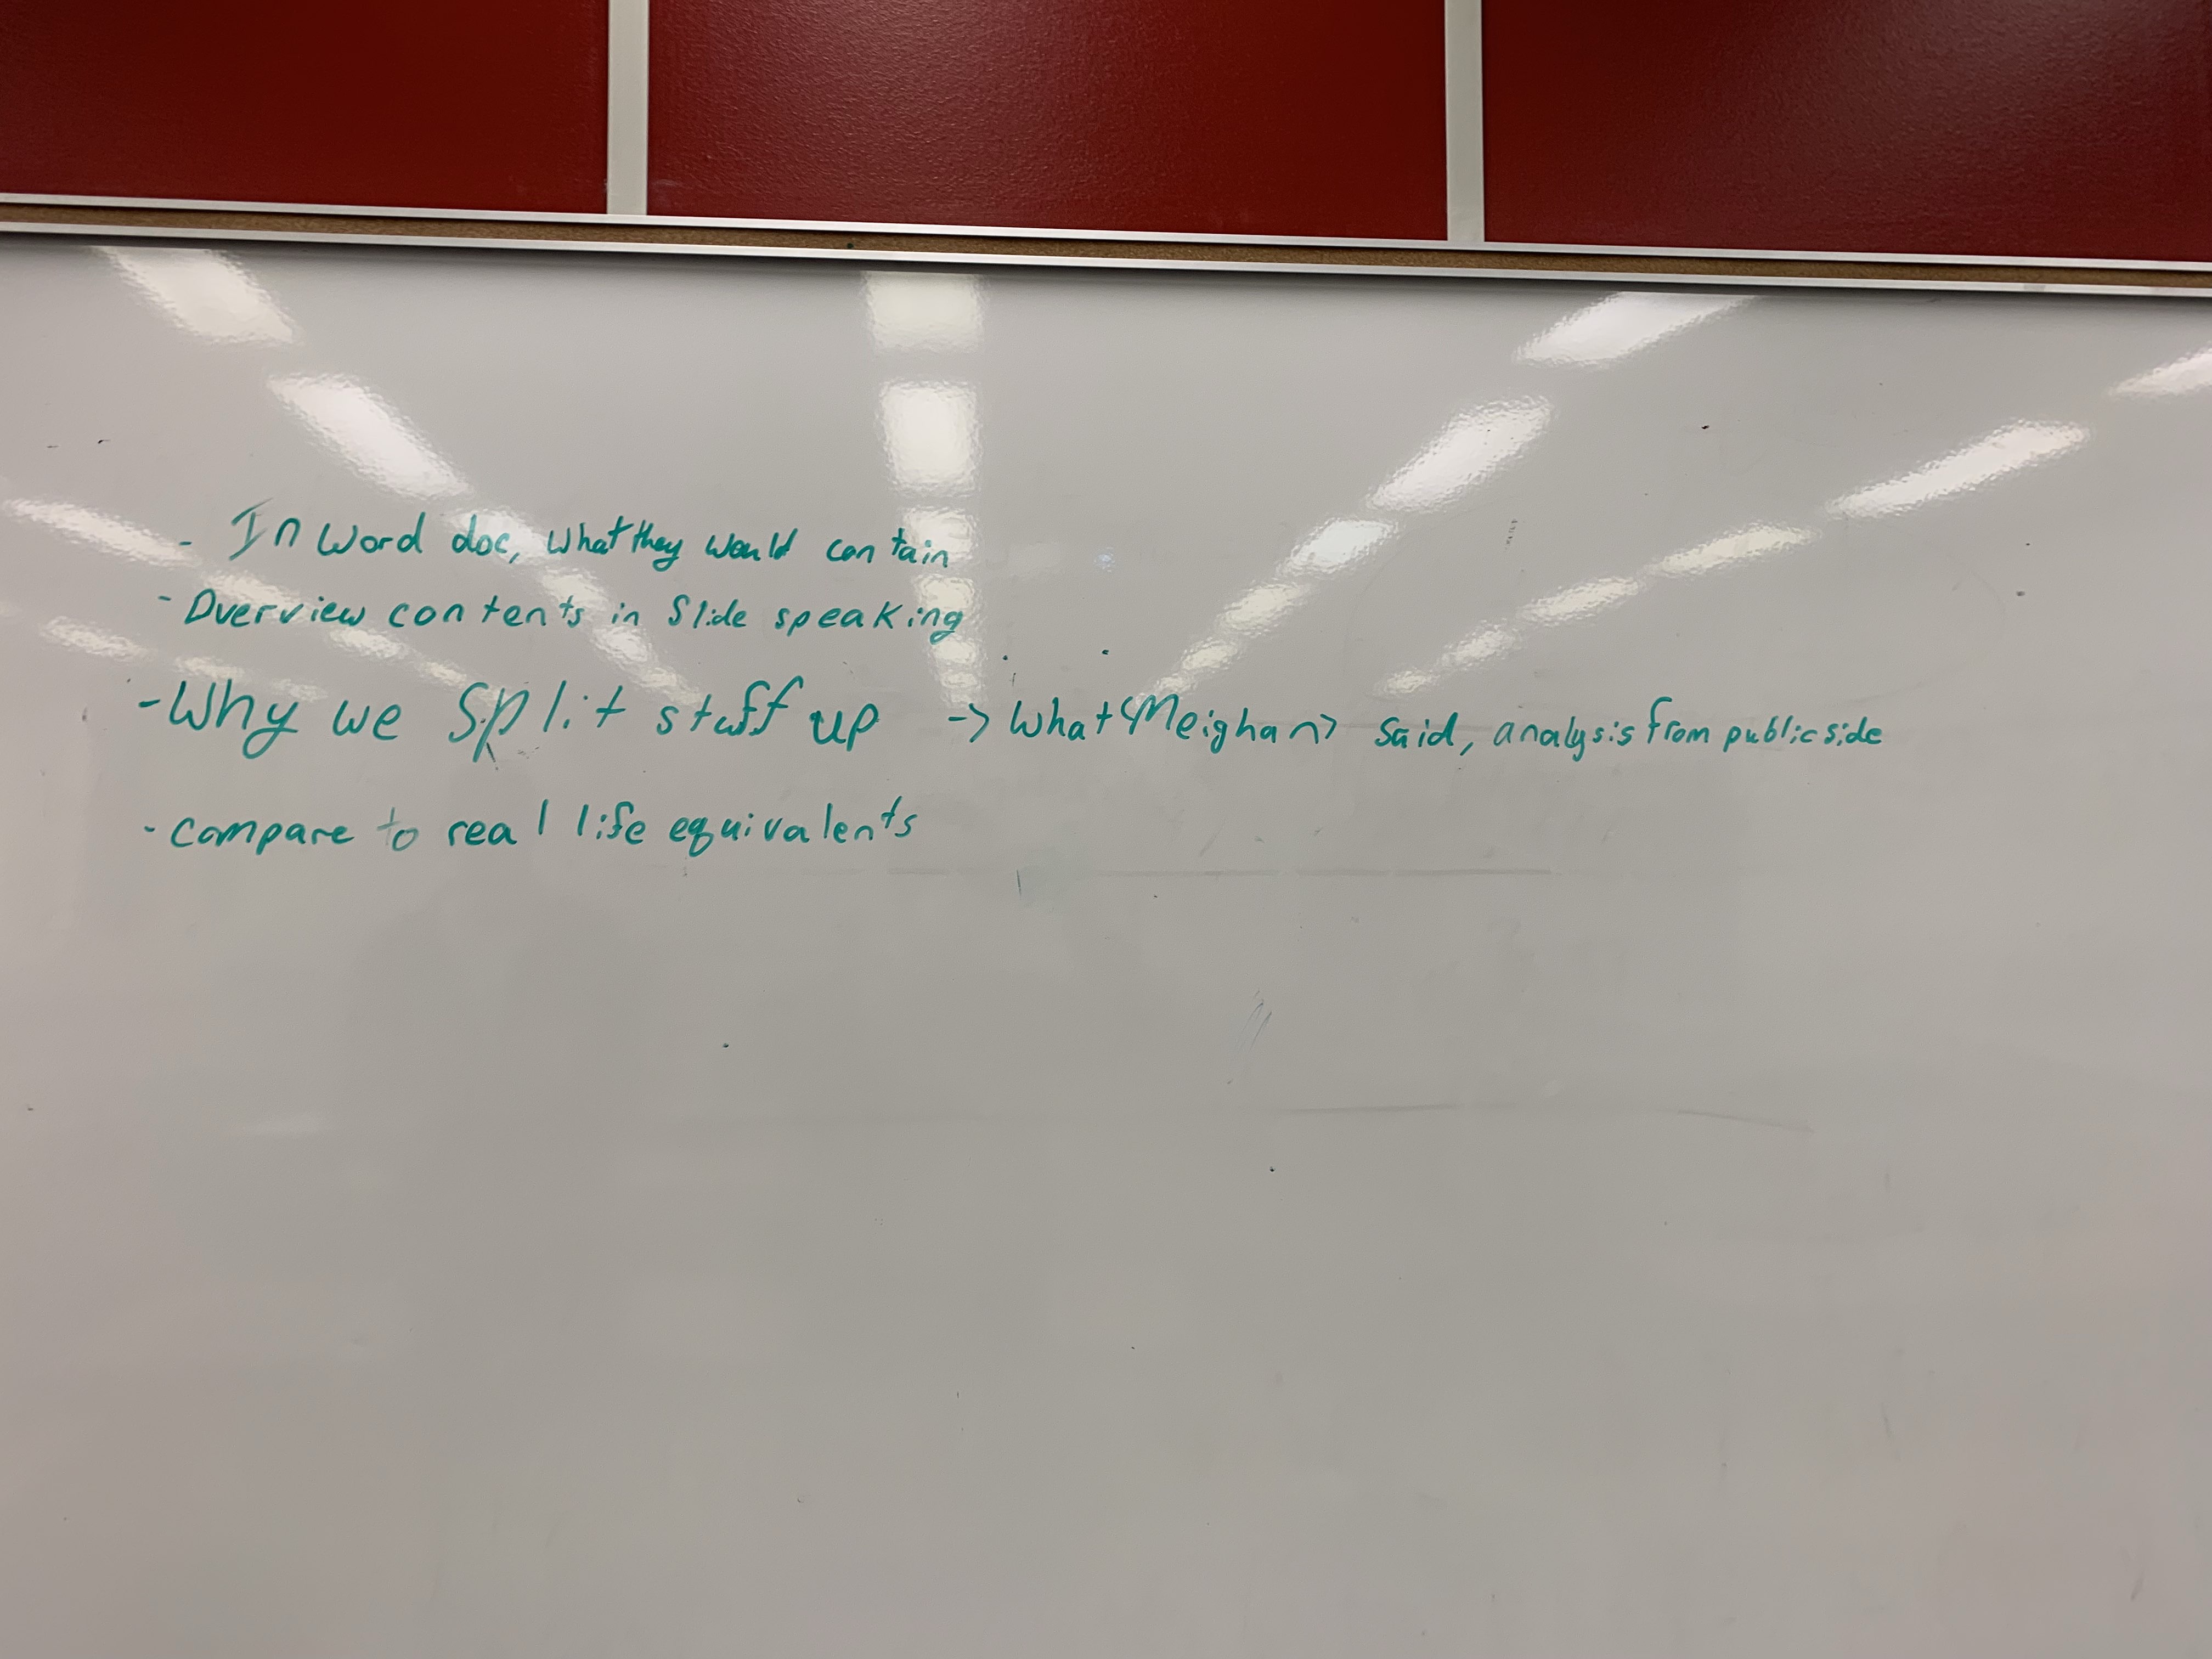 - In Word doc, what they would contain
- Overview contents in Slide speaking
- Why we split stuff up -> What <Meighan> said, analysis from public side
- compare to real life equivalents